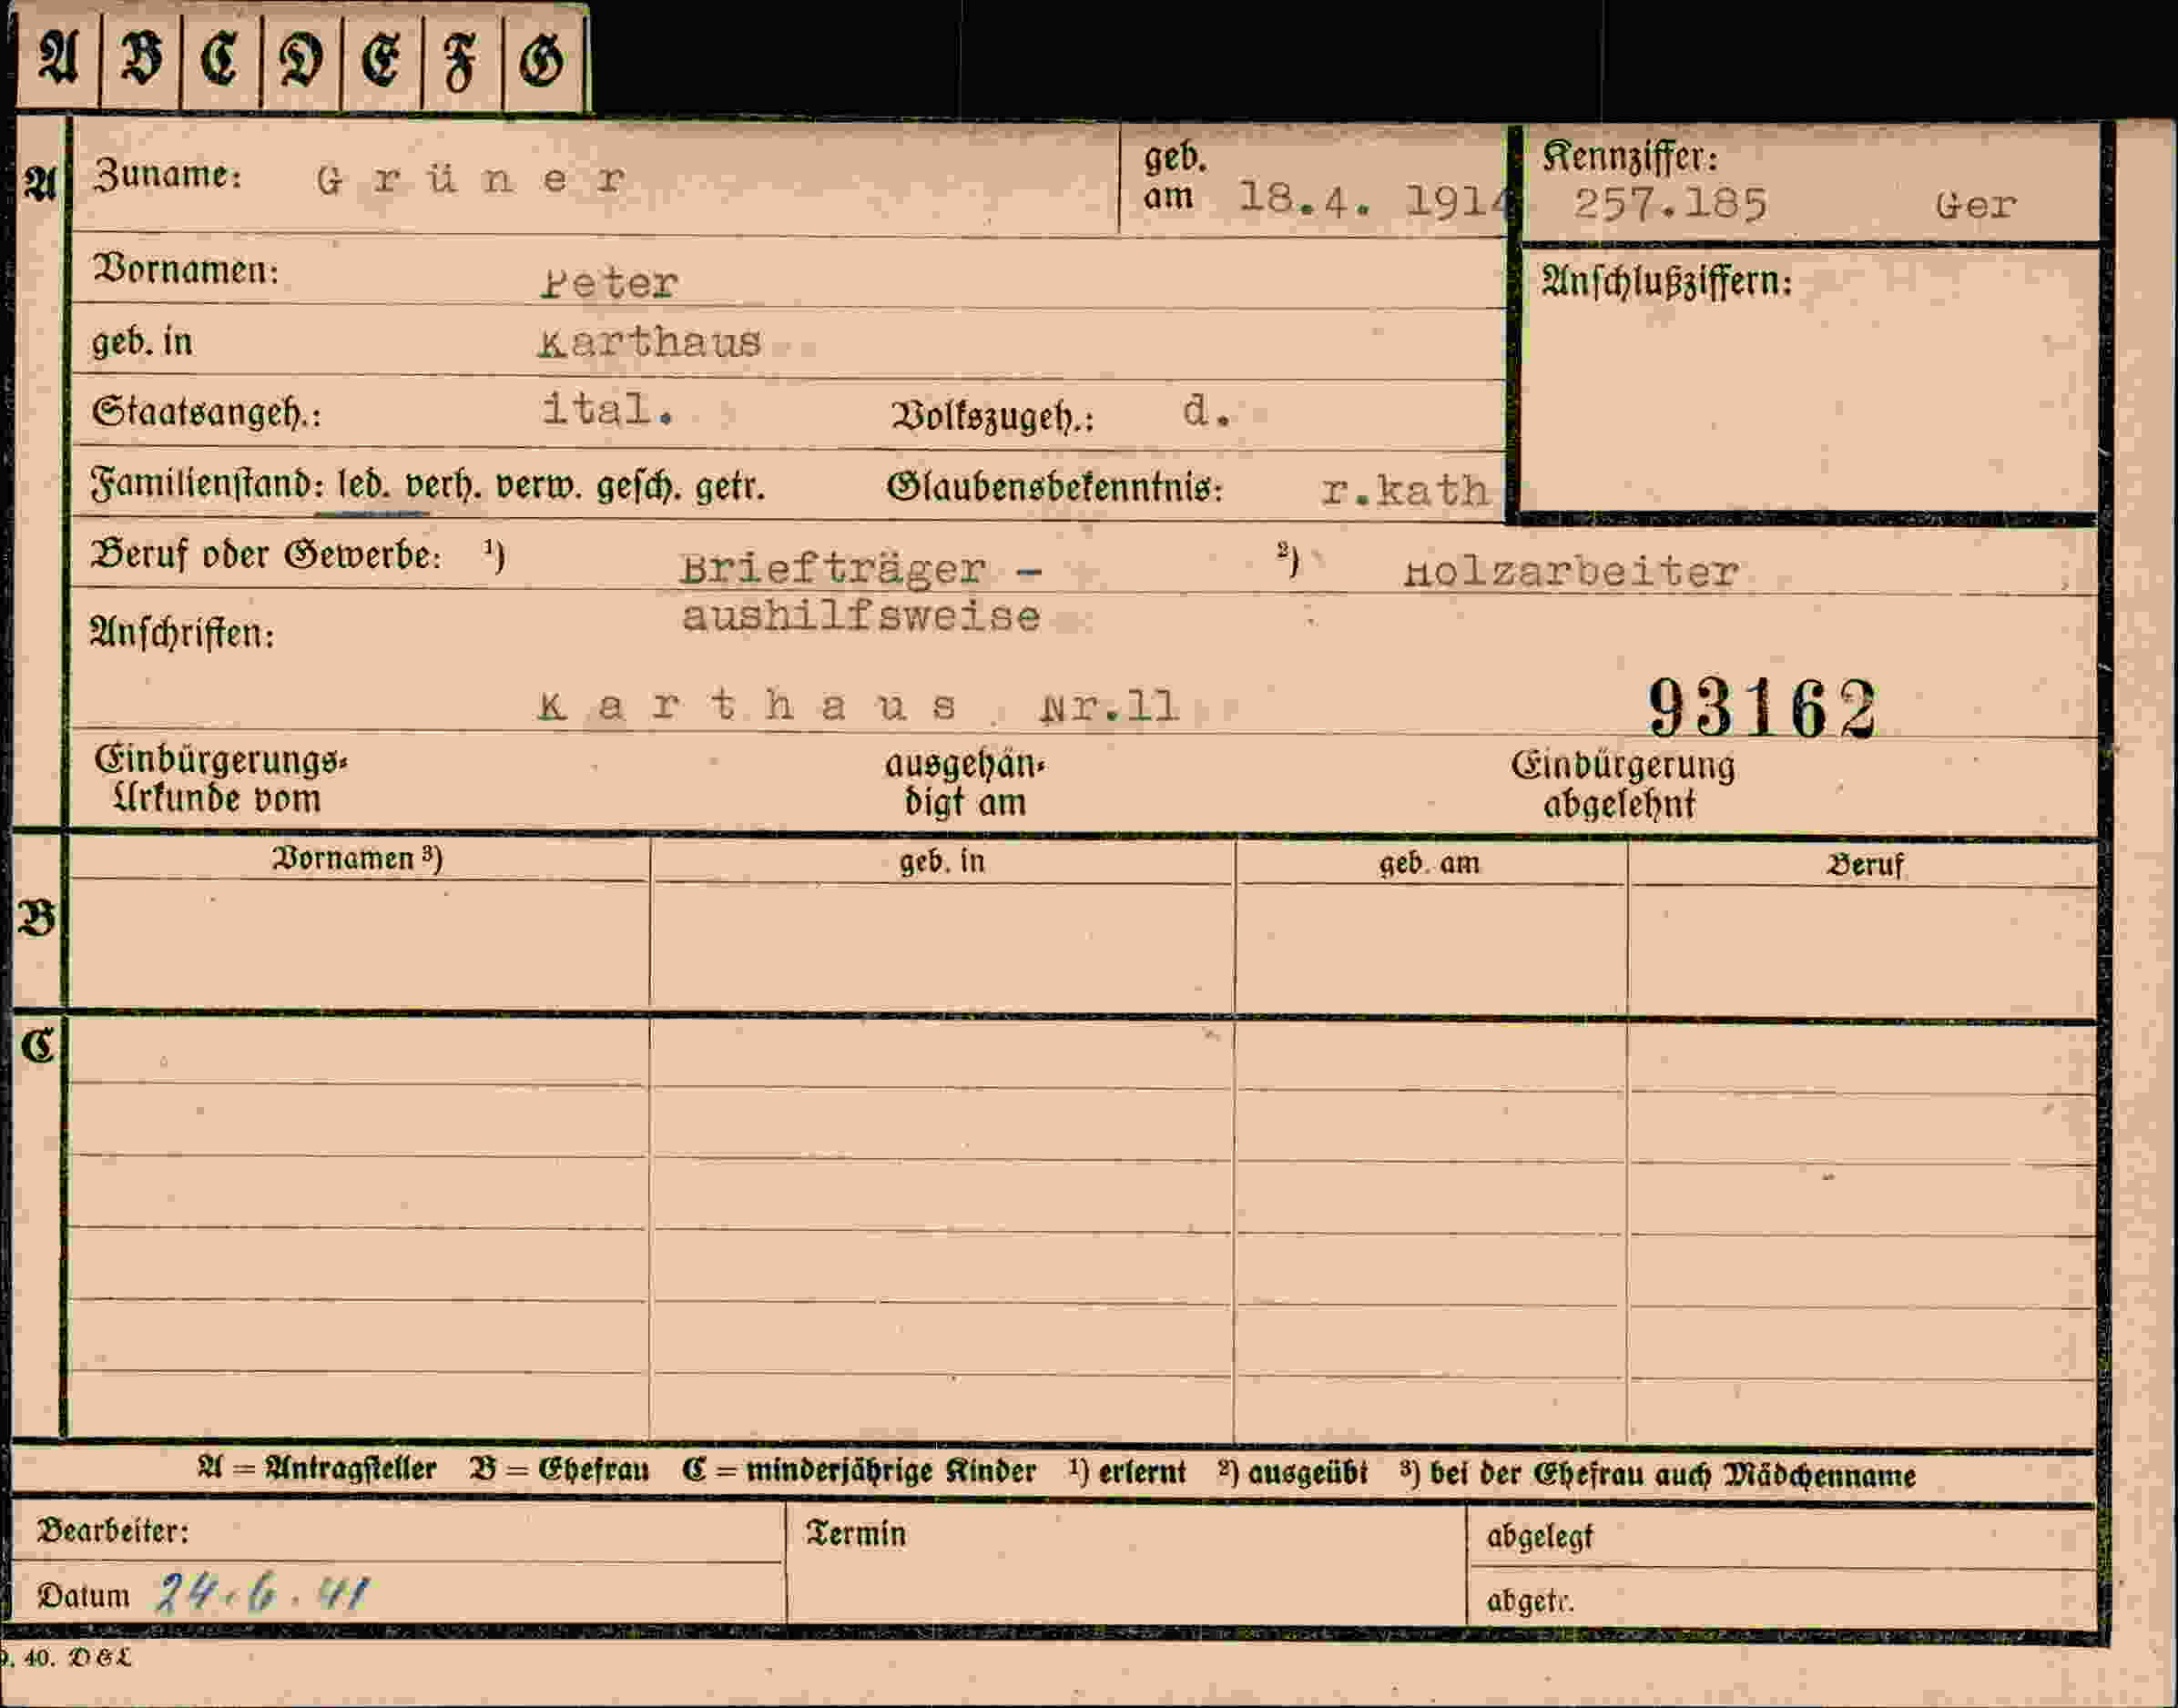 A B C D E F G
A Zuname: Grüner geb. am 18.4. 1914 Kennziffer: 257.185 Ger
Vornamen: Peter Anschlußziffern:
geb. in Karthaus
Staatsangeh.: ital. Volkszugeh.: d.
Familienstand: led. verh. verw. gesch. getr. Glaubensbekenntnis: r.kath
Beruf oder Gewerbe: ¹) Briefträger - ²) Holzarbeiter
aushilfsweise
Anschriften:
Karthaus Nr.11 93162
Einbürgerungs- ausgehän- Einbürgerung
Urkunde vom digt am abgelehnt
Vornamen ³) geb. in geb. am Beruf
B
C
A = Antragsteller B = Ehefrau C = minderjährige Kinder ¹) erlernt ²) ausgeübt ³) bei der Ehefrau auch Mädchenname
Bearbeiter: Termin abgelegt
Datum 24.6.41 abgetr.
. 40. D&L